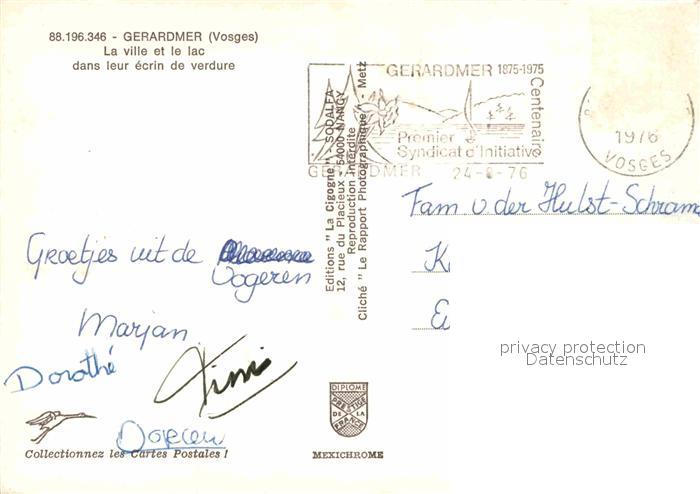 88.196.346 - GERARDMER (Vosges)
La ville et le lac
dans leur écrin de verdure
GERARDMER 1875-1975
Centenaire
Premier
Syndicat d'Initiative
GERARDMER 24-8-76
1976
VOSGES
Editions "La Cigogne" - SODALFA
12, rue du Placieux - 54000 NANCY
Reproduction Interdite
Cliché "Le Rapport Photographique" - Metz
Fam v der Hulst-Schram
K
E
privacy protection
Datenschutz
Groetjes uit de
Vogezen
Marjan
Dorothé
Collectionnez les Cartes Postales !
DIPLOME
PRESTIGE
DE LA
FRANCE
MEXICHROME